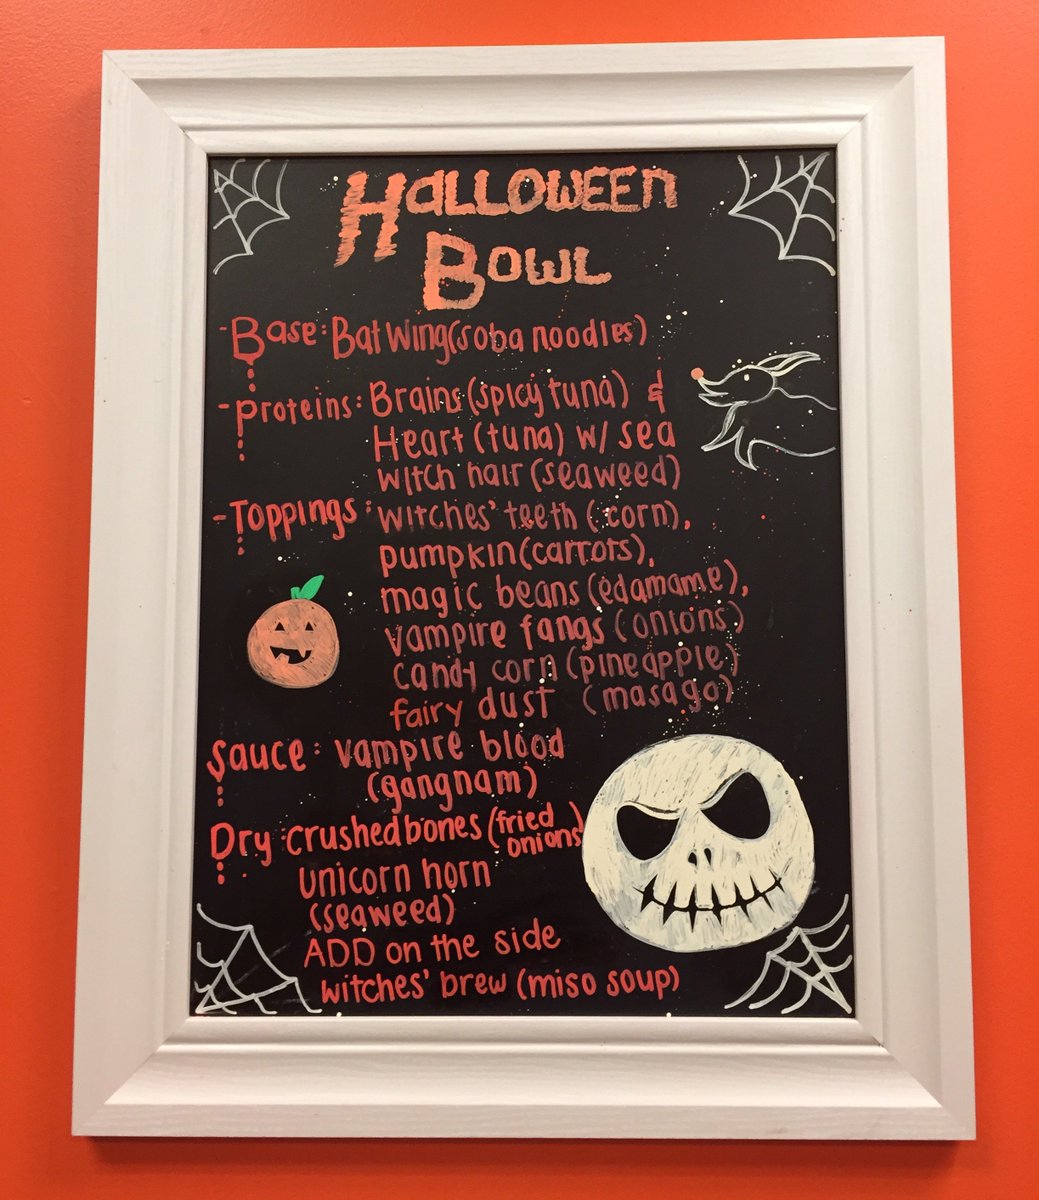 HALLOWEEN
BOWL
-Base: Bat Wing (soba noodles)
-proteins: Brains (spicy tuna) &
Heart (tuna) w/ sea
witch hair (seaweed)
-Toppings: witches' teeth (corn),
pumpkin (carrots),
magic beans (edamame),
vampire fangs (onions)
candy corn (pineapple)
fairy dust (masago)
Sauce: vampire blood
(gangnam)
Dry: crushed bones (fried
onions)
unicorn horn
(seaweed)
ADD on the side
witches' brew (miso soup)